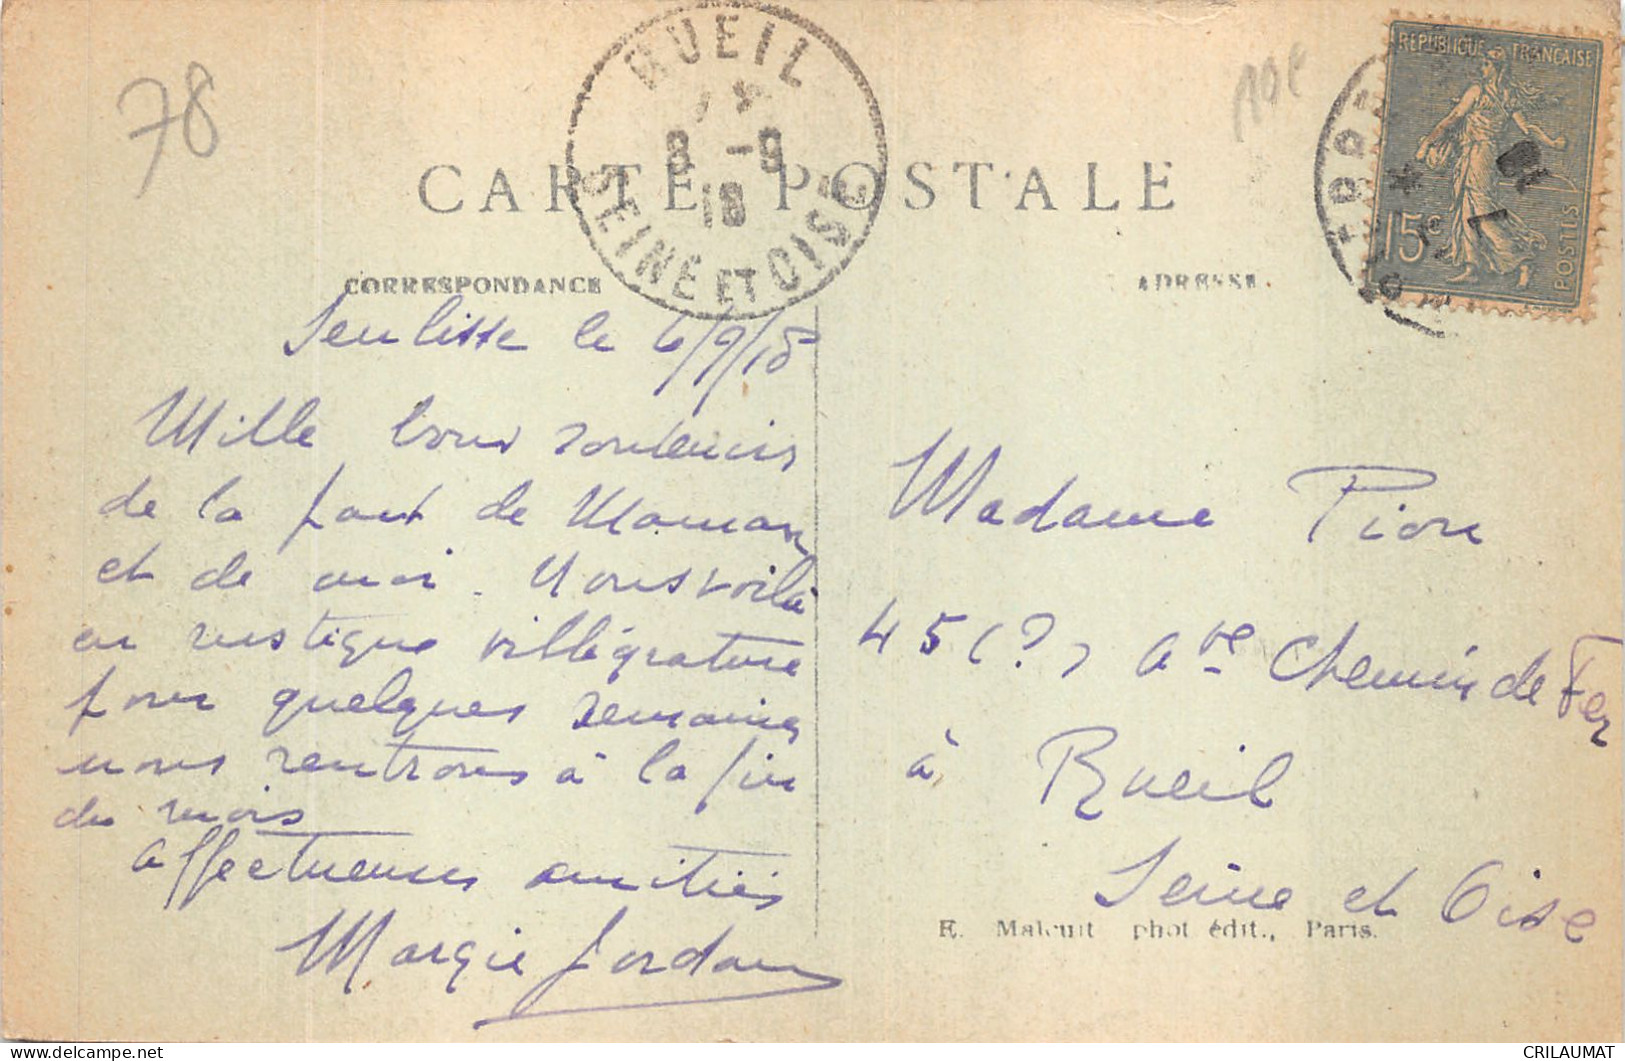 78
RUEIL
8 -9
18
SEINE ET OISE
10€
REPUBLIQUE FRANÇAISE
15c
POSTES
CARTE POSTALE
CORRESPONDANCE
ADRESSE.
Senlisse le 6/9/18
Mille bons souvenirs
de la part de Maman
et de moi. Nous voilà
en rustique villégiature
pour quelques semaines
nous rentrons à la fin
du mois
Affectueuses amitiés
Margie Jordan
Madame Pion
45 (?) Ave Chemin de Fer
à Rueil
Seine et Oise
E. Malcuit phot édit., Paris.
CRILAUMAT